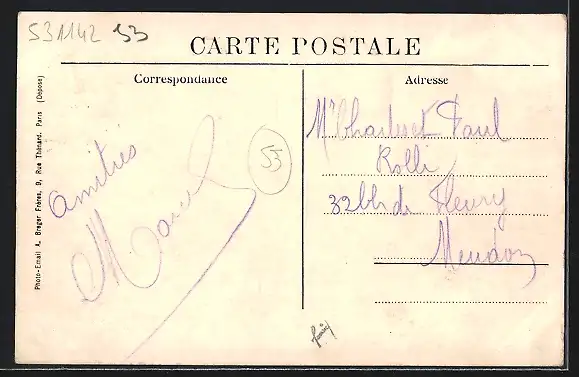 531142 53
CARTE POSTALE
Correspondance
Adresse
Photo-Email A. Breger Frères, 9, Rue Thénard, Paris (Déposé)
Amitiés
Marcel
53
Mr Charles et Paul
Rolli
32 bis de Fleury
Meudon